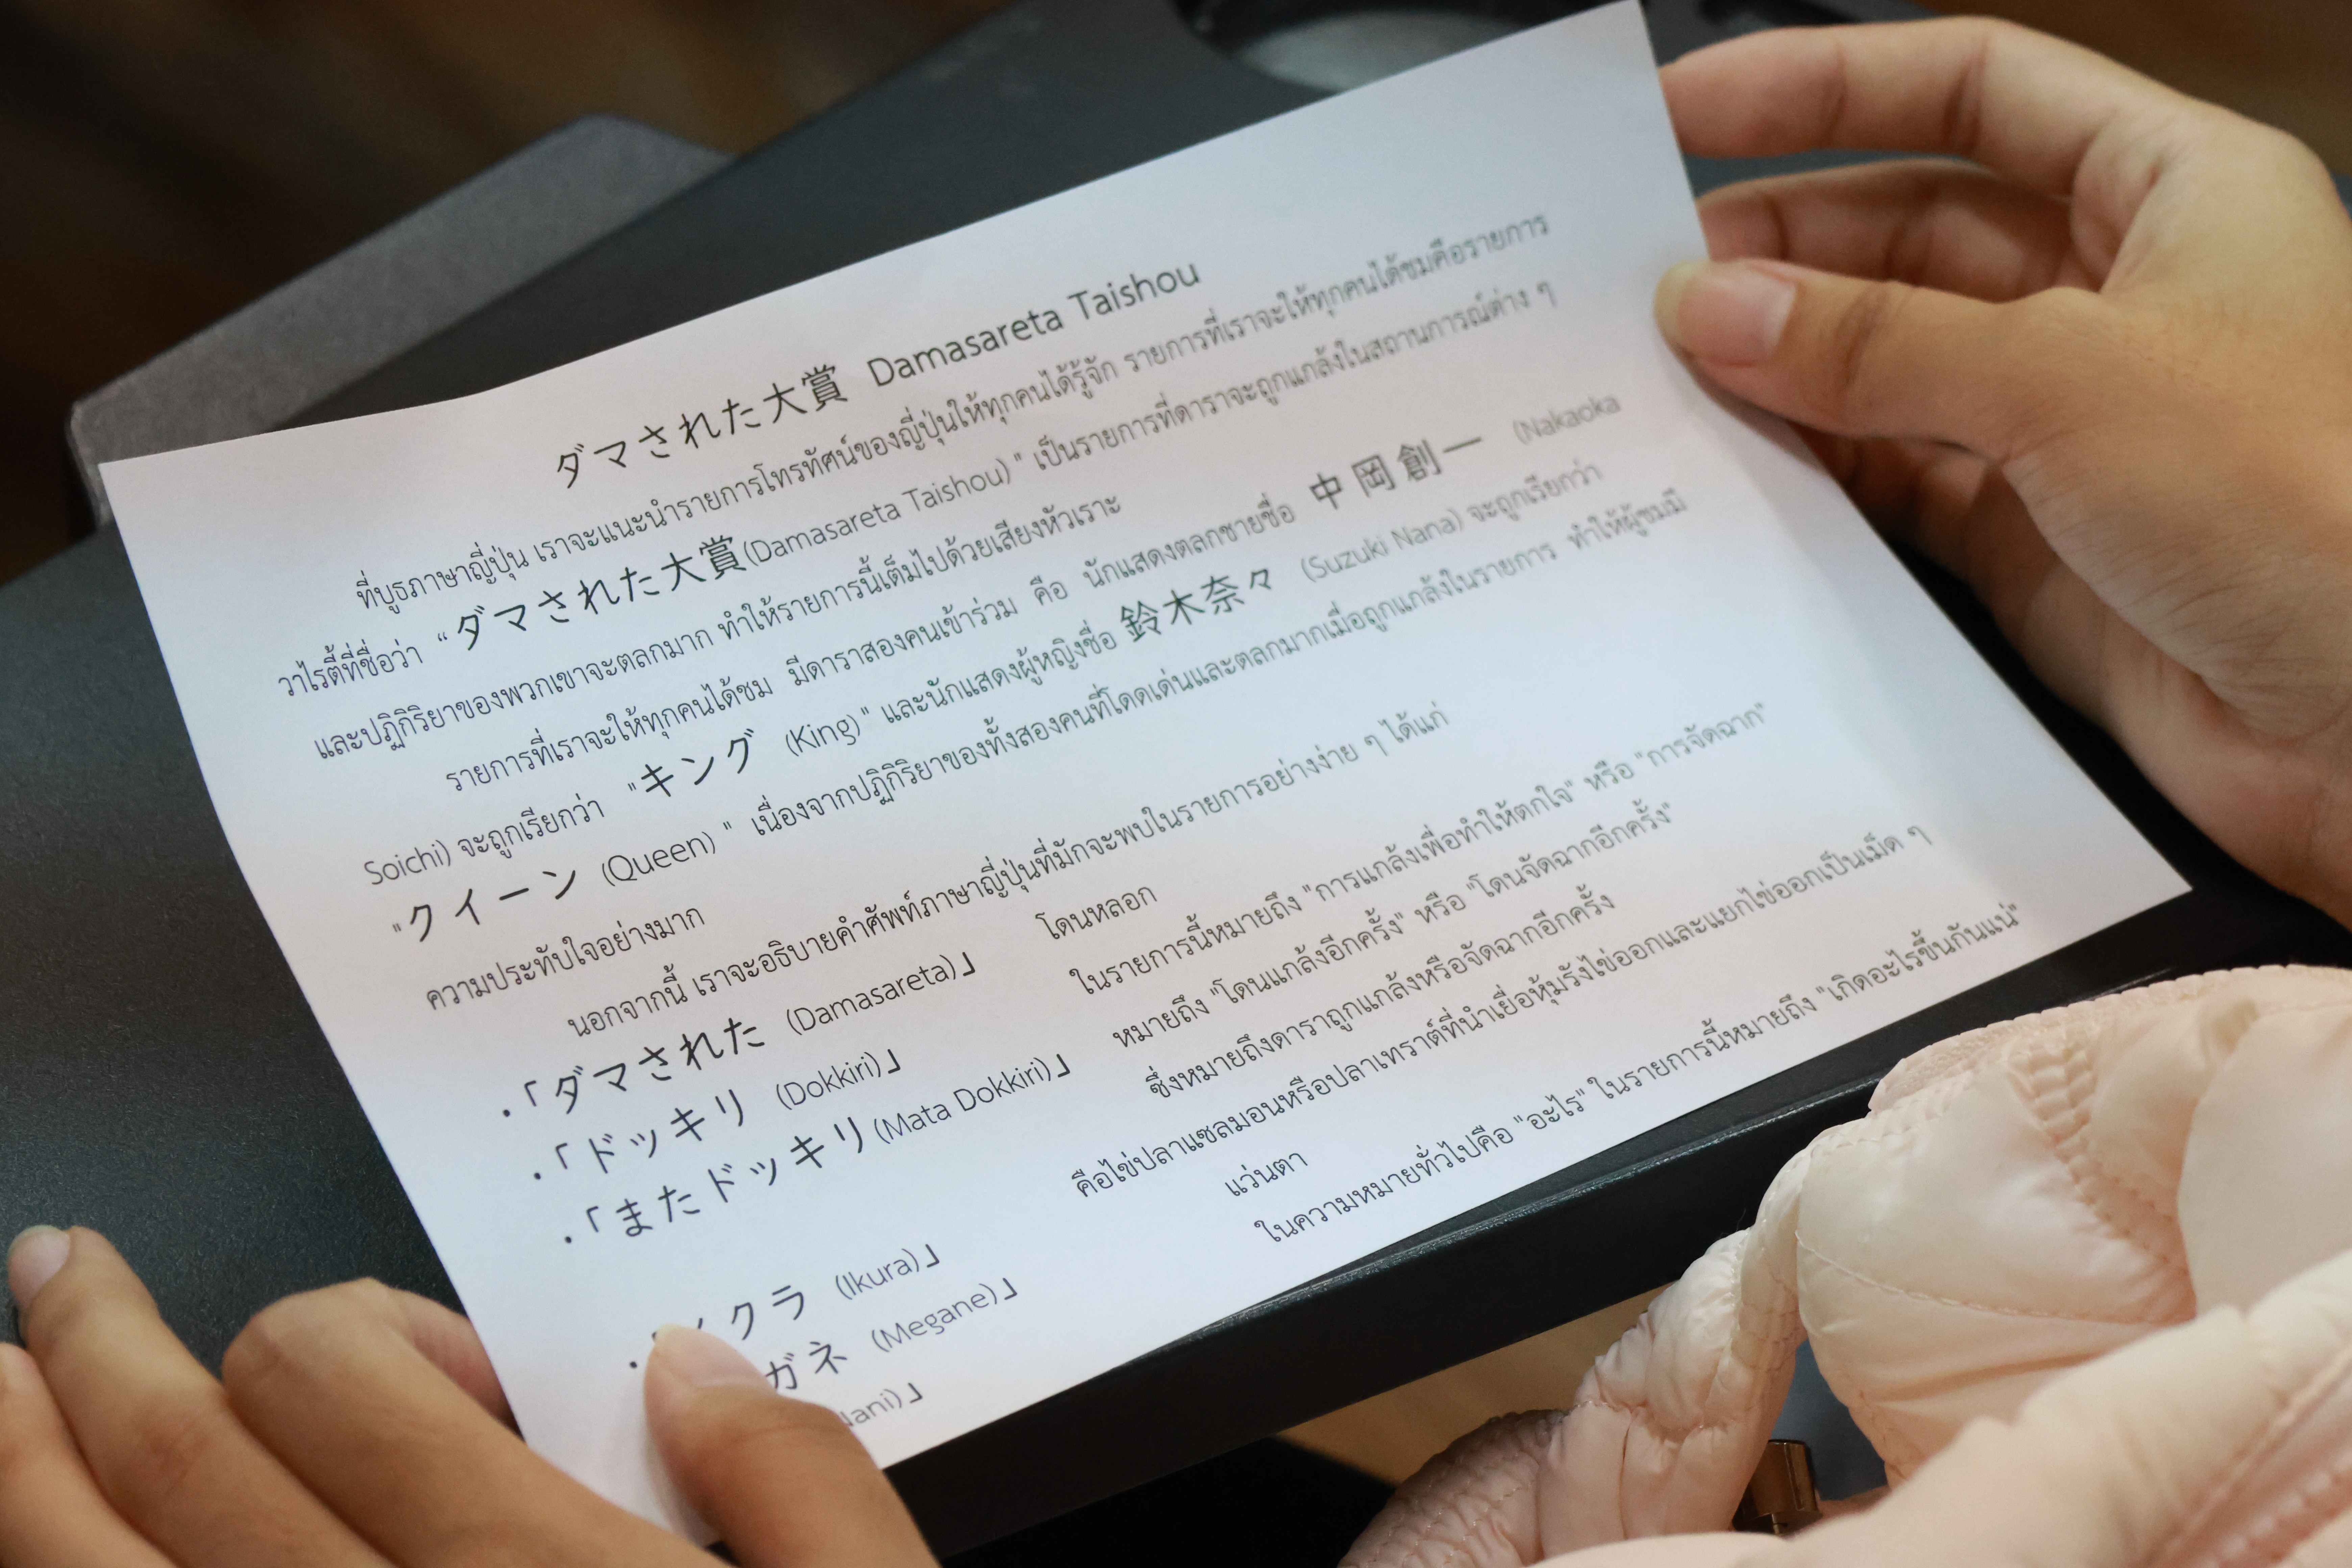 ダマされた大賞 Damasareta Taishou
ที่บูธภาษาญี่ปุ่น เราจะแนะนำรายการโทรทัศน์ของญี่ปุ่นให้ทุกคนได้รู้จัก รายการที่เราจะให้ทุกคนได้ชมคือรายการ
วาไรตี้ที่ชื่อว่า "ダマされた大賞(Damasareta Taishou) " เป็นรายการที่ดาราจะถูกแกล้งในสถานการณ์ต่าง ๆ
และปฏิกิริยาของพวกเขาจะตลกมาก ทำให้รายการนี้เต็มไปด้วยเสียงหัวเราะ
รายการที่เราจะให้ทุกคนได้ชม มีดาราสองคนเข้าร่วม คือ นักแสดงตลกชายชื่อ 中岡創一 (Nakaoka
Soichi) จะถูกเรียกว่า "キング (King) " และนักแสดงผู้หญิงชื่อ 鈴木奈々 (Suzuki Nana) จะถูกเรียกว่า
"クイーン (Queen) " เนื่องจากปฏิกิริยาของทั้งสองคนที่โดดเด่นและตลกมากเมื่อถูกแกล้งในรายการ ทำให้ผู้ชมมี
ความประทับใจอย่างมาก
นอกจากนี้ เราจะอธิบายคำศัพท์ภาษาญี่ปุ่นที่มักจะพบในรายการอย่างง่าย ๆ ได้แก่
・「ダマされた (Damasareta)」 โดนหลอก
・「ドッキリ (Dokkiri)」 ในรายการนี้หมายถึง "การแกล้งเพื่อทำให้ตกใจ" หรือ "การจัดฉาก"
・「またドッキリ(Mata Dokkiri)」 หมายถึง "โดนแกล้งอีกครั้ง" หรือ "โดนจัดฉากอีกครั้ง"
ซึ่งหมายถึงดาราถูกแกล้งหรือจัดฉากอีกครั้ง
・クラ (Ikura)」 คือไข่ปลาแซลมอนหรือปลาเทราต์ที่นำเยื่อหุ้มรังไข่ออกและแยกไข่ออกเป็นเม็ด ๆ
ガネ (Megane)」 แว่นตา
ani)」 ในความหมายทั่วไปคือ "อะไร" ในรายการนี้หมายถึง "เกิดอะไรขึ้นกันแน่"